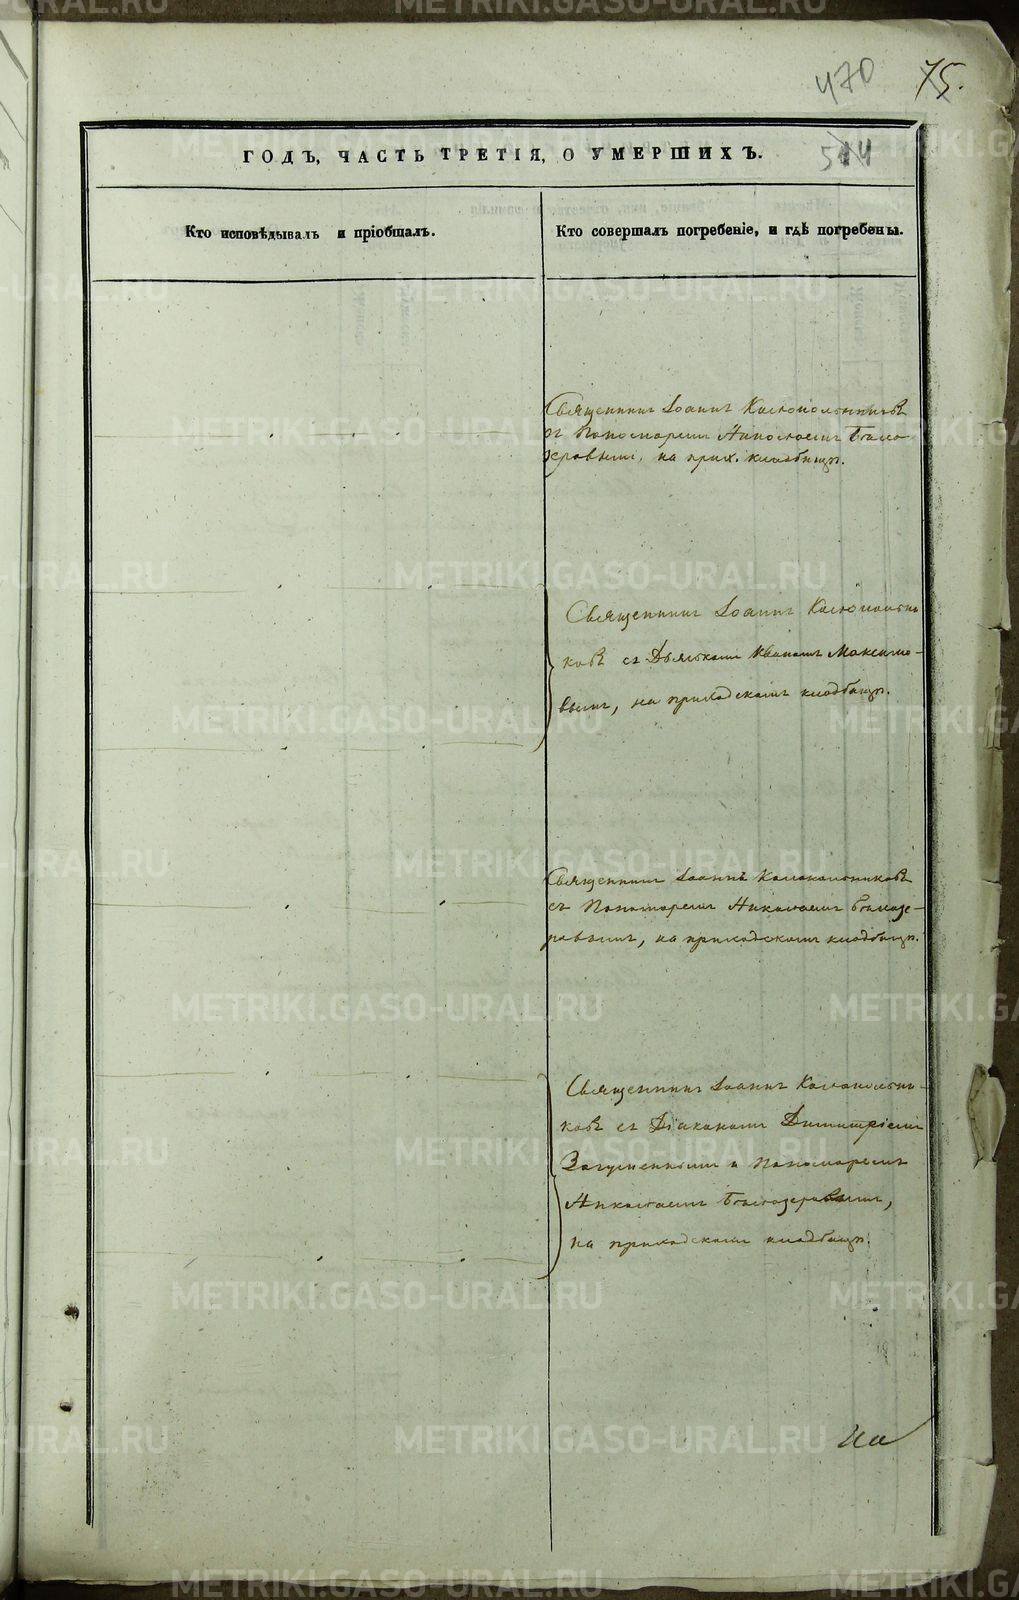 470 75.
ГОДЪ, ЧАСТЬ ТРЕТІЯ, О УМЕРШИХЪ.
514
Кто исповѣдывалъ и пріобщалъ.
Кто совершалъ погребеніе, и гдѣ погребены.
Священникъ Іоаннъ Колокольниковъ
съ Пономаремъ Николаемъ
на прих. кладбищѣ.
Священникъ Іоаннъ Колокольни
ковъ съ Дьячкомъ Иваномъ Максимо-
вымъ, на приходскомъ кладбищѣ.
Священникъ Іоаннъ Колокольниковъ
съ Пономаремъ Николаемъ Благозе-
ровымъ, на приходскомъ кладбищѣ.
Священникъ Іоаннъ Колокольни-
ковъ съ Діакономъ Димитріемъ
и Пономаремъ
Николаемъ Благозеровымъ,
на приходскомъ кладбищѣ.
METRIKI.GASO-URAL.RU